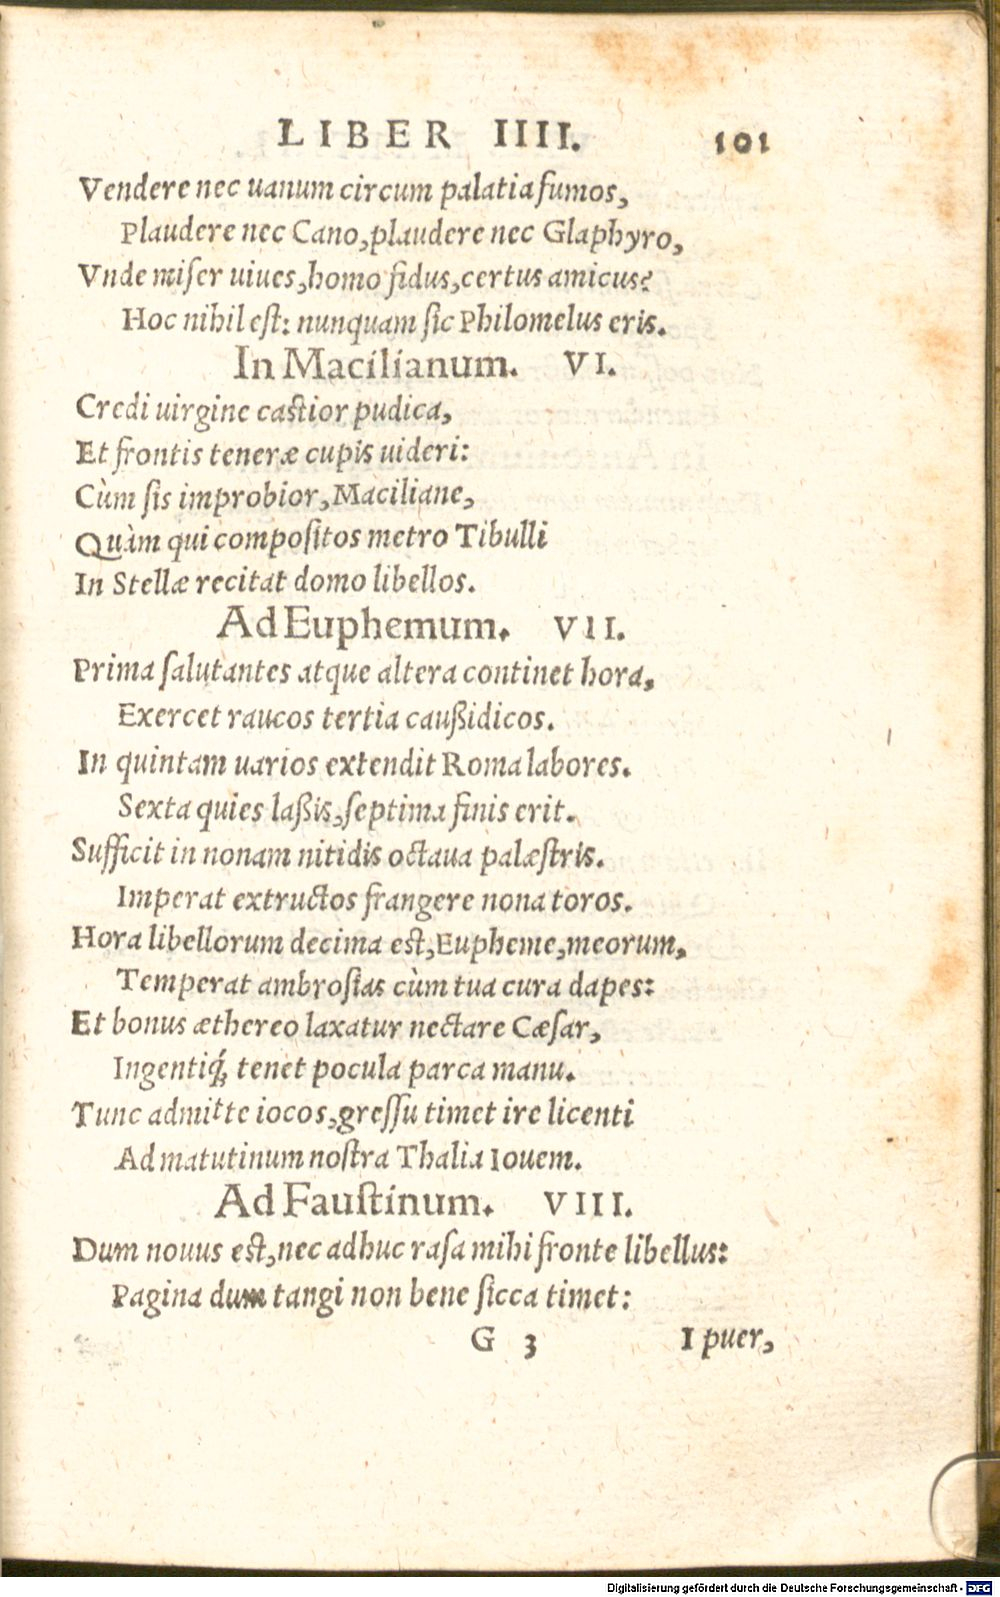 LIBER IIII. 101
Vendere nec uanum circum palatia fumos,
Plaudere nec Cano, plaudere nec Glaphyro,
Vnde miser uiues, homo fidus, certus amicus?
Hoc nihil est: nunquam sic Philomelus eris.
In Macilianum. VI.
Credi uirgine castior pudica,
Et frontis teneræ cupis uideri:
Cùm sis improbior, Maciliane,
Quàm qui compositos metro Tibulli
In Stellæ recitat domo libellos.
Ad Euphemum. VII.
Prima salutantes atque altera continet hora,
Exercet raucos tertia caußidicos.
In quintam uarios extendit Roma labores.
Sexta quies laßis, septima finis erit.
Sufficit in nonam nitidis octaua palæstris.
Imperat extructos frangere nona toros.
Hora libellorum decima est, Eupheme, meorum,
Temperat ambrosias cùm tua cura dapes:
Et bonus æthereo laxatur nectare Cæsar,
Ingentiq́; tenet pocula parca manu.
Tunc admitte iocos, gressu timet ire licenti
Ad matutinum nostra Thalia Iouem.
Ad Faustinum. VIII.
Dum nouus est, nec adhuc rasa mihi fronte libellus:
Pagina dum tangi non bene sicca timet:
G 3 I puer,
Digitalisierung gefördert durch die Deutsche Forschungsgemeinschaft - DFG